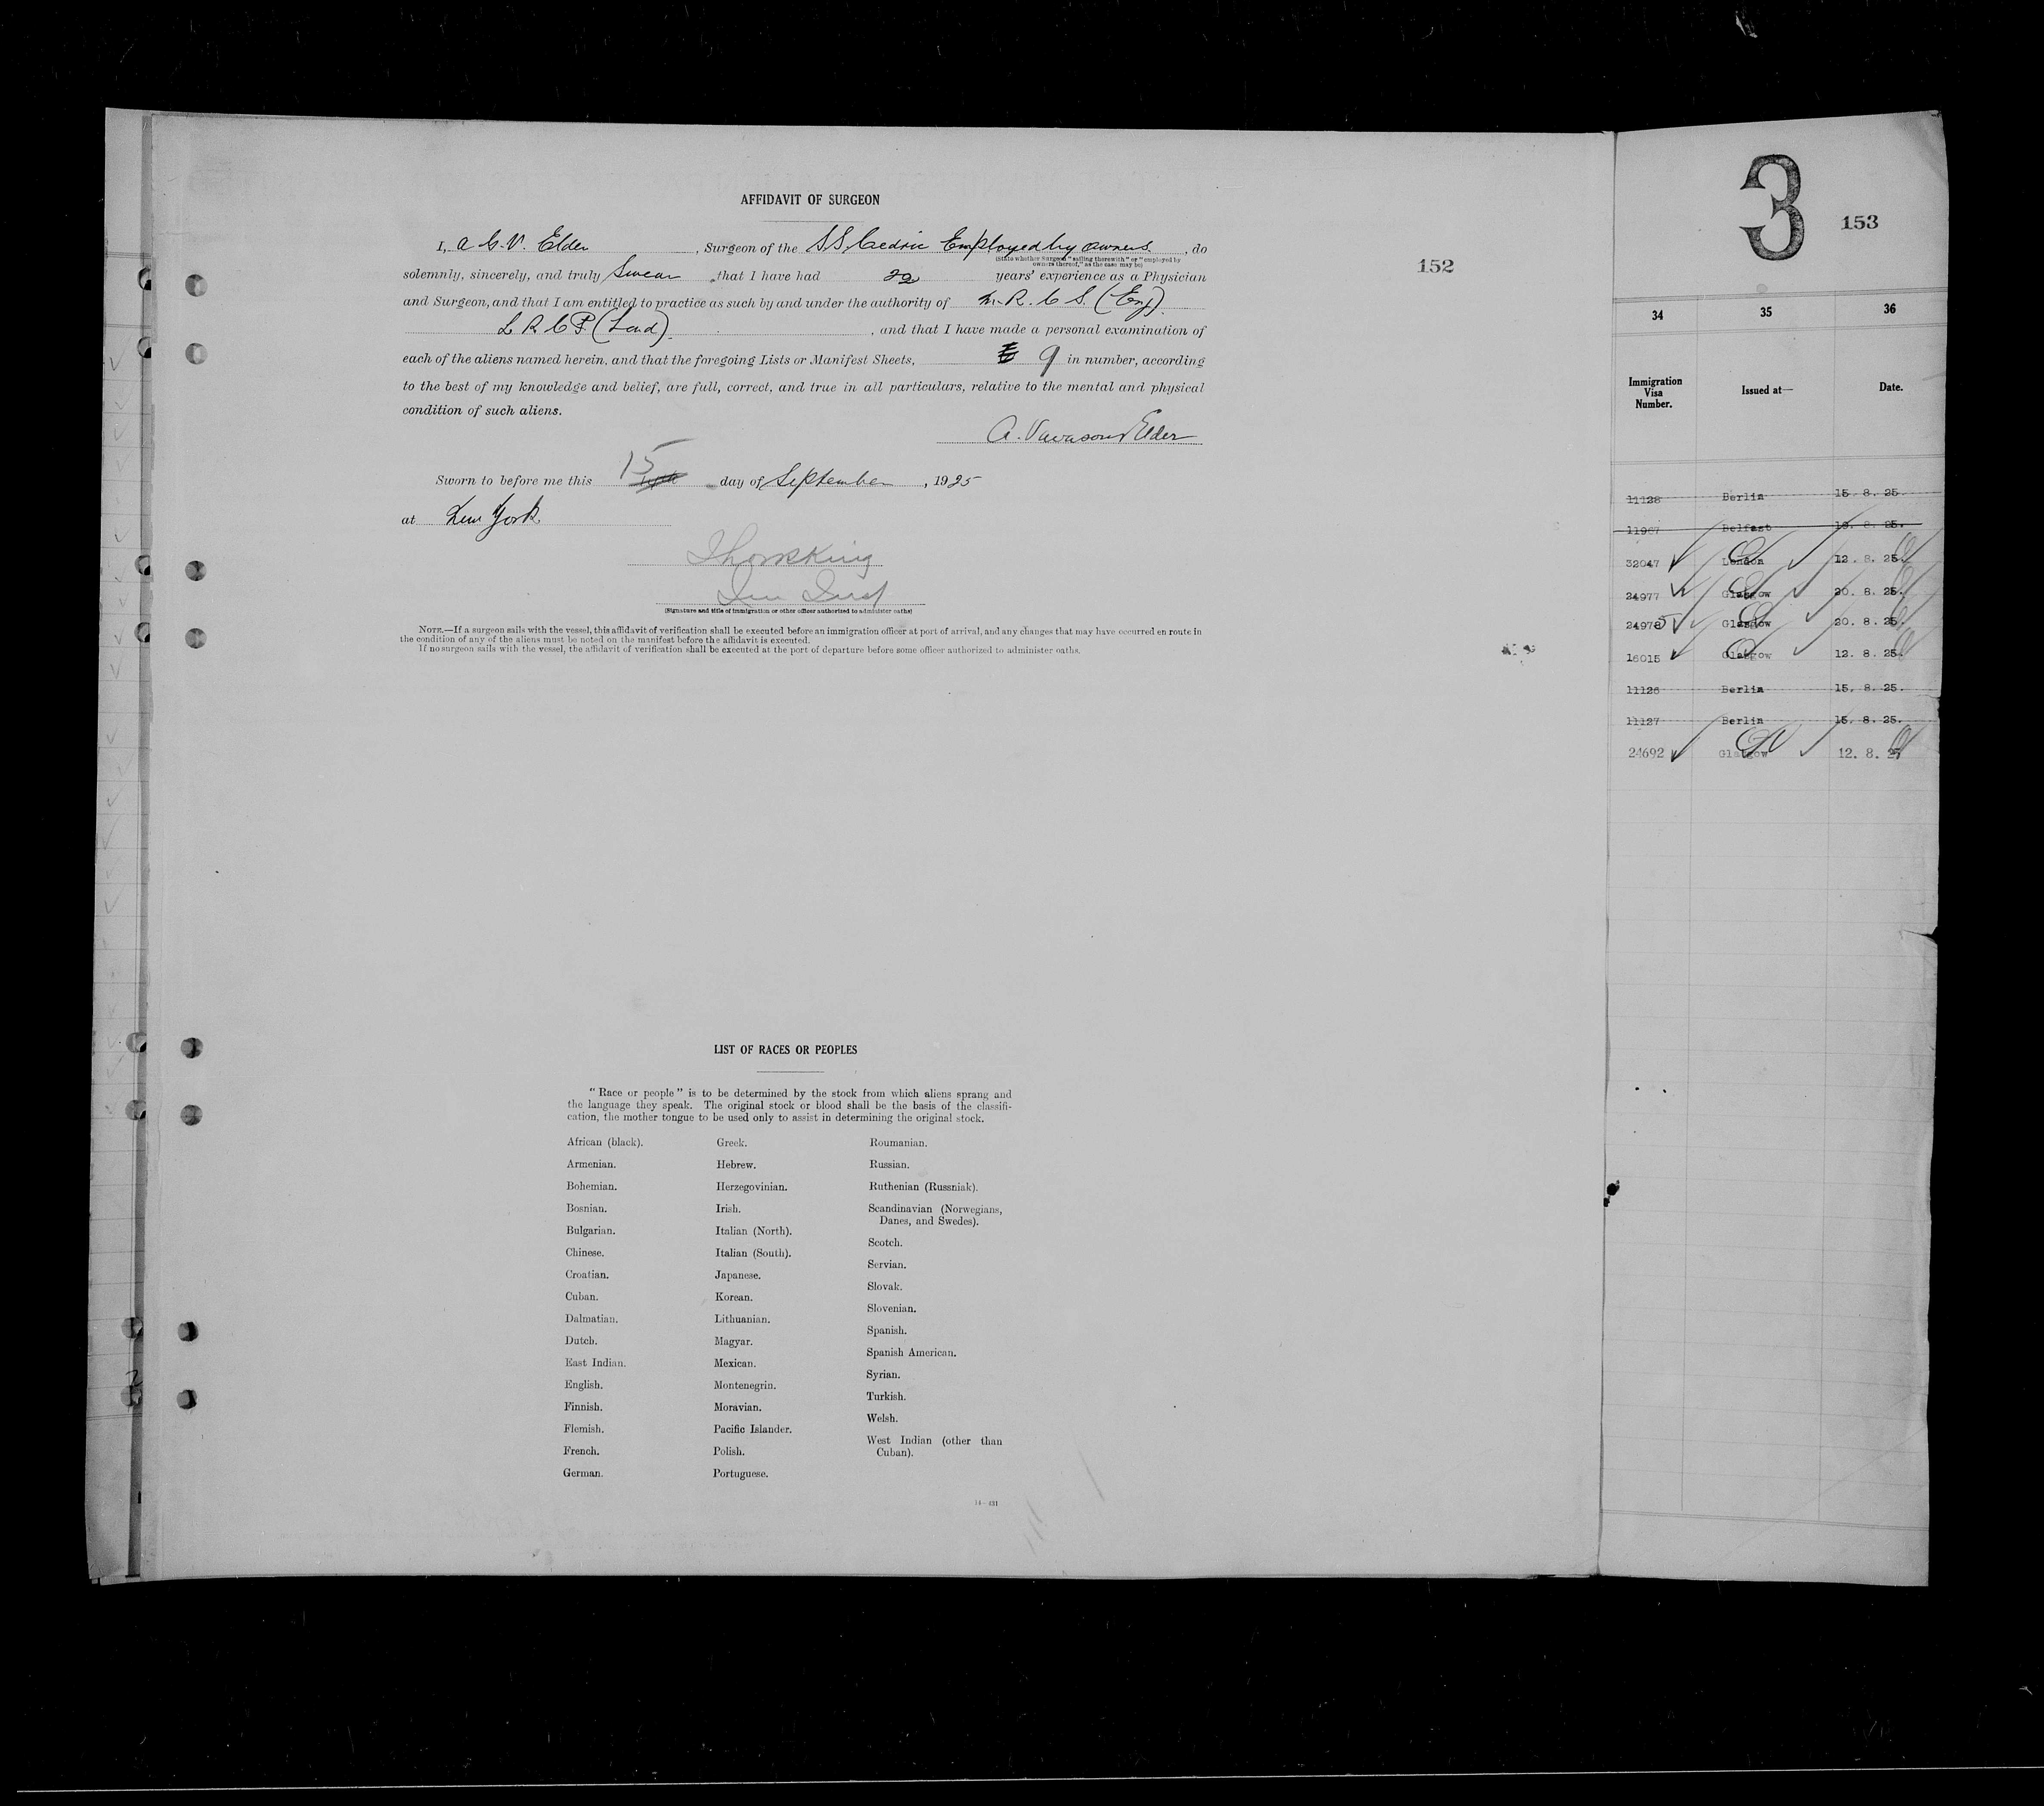 AFFIDAVIT OF SURGEON
I, A. C. V. Elder, Surgeon of the S.S. Cedric Employed by owners, do
(State whether Surgeon "sailing therewith" or "employed by
owners thereof," as the case may be)
solemnly, sincerely, and truly Swear, that I have had 22 years' experience as a Physician
and Surgeon, and that I am entitled to practice as such by and under the authority of M.R.C.S. (Eng)
L R C P. (Lond), and that I have made a personal examination of
each of the aliens named herein, and that the foregoing Lists or Manifest Sheets, 9 in number, according
to the best of my knowledge and belief, are full, correct, and true in all particulars, relative to the mental and physical
condition of such aliens.
A. Vavasour Elder
Sworn to before me this 15 day of September, 1925
at New York
(Signature and title of immigration or other officer authorized to administer oaths)
NOTE.—If a surgeon sails with the vessel, this affidavit of verification shall be executed before an immigration officer at port of arrival, and any changes that may have occurred en route in
the condition of any of the aliens must be noted on the manifest before the affidavit is executed.
If no surgeon sails with the vessel, the affidavit of verification shall be executed at the port of departure before some officer authorized to administer oaths.
152
LIST OF RACES OR PEOPLES
"Race or people" is to be determined by the stock from which aliens sprang and
the language they speak. The original stock or blood shall be the basis of the classifi-
cation, the mother tongue to be used only to assist in determining the original stock.
African (black).
Armenian.
Bohemian.
Bosnian.
Bulgarian.
Chinese.
Croatian.
Cuban.
Dalmatian.
Dutch.
East Indian.
English.
Finnish.
Flemish.
French.
German.
Greek.
Hebrew.
Herzegovinian.
Irish.
Italian (North).
Italian (South).
Japanese.
Korean.
Lithuanian.
Magyar.
Mexican.
Montenegrin.
Moravian.
Pacific Islander.
Polish.
Portuguese.
Roumanian.
Russian.
Ruthenian (Russniak).
Scandinavian (Norwegians,
Danes, and Swedes).
Scotch.
Servian.
Slovak.
Slovenian.
Spanish.
Spanish American.
Syrian.
Turkish.
Welsh.
West Indian (other than
Cuban).
14—431
3
153
34 35 36
Immigration
Visa
Number.
Issued at—
Date.
11128 Berlin 15. 8. 25.
11967 Belfast 19. 8. 25.
32047 London 12. 8. 25.
24977 Glasgow 20. 8. 25.
24975 Glasgow 20. 8. 25.
16015 Glasgow 12. 8. 25.
11126 Berlin 15. 8. 25.
11127 Berlin 15. 8. 25.
24692 Glasgow 12. 8. 25